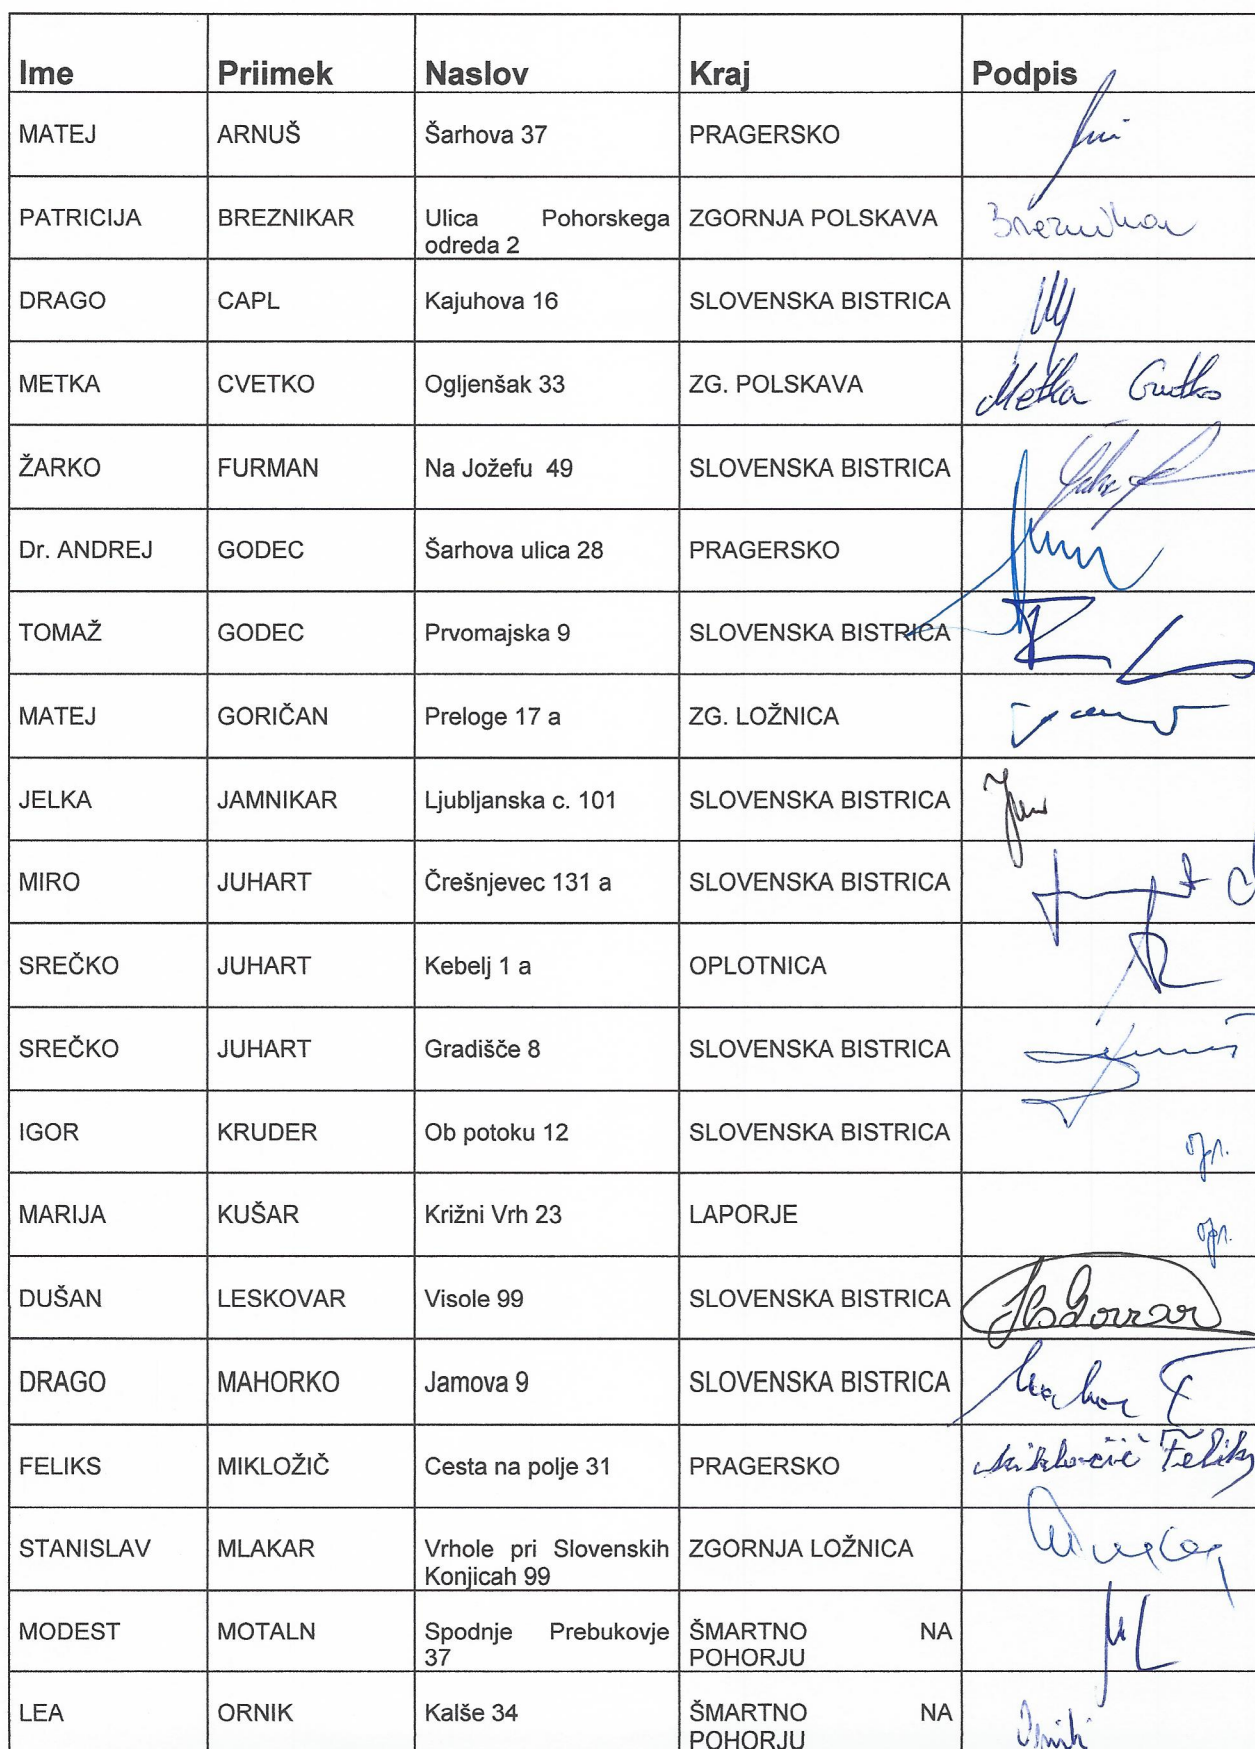 Ime Priimek Naslov Kraj Podpis
MATEJ ARNUŠ Šarhova 37 PRAGERSKO
PATRICIJA BREZNIKAR Ulica Pohorskega ZGORNJA POLSKAVA Breznikar
odreda 2
DRAGO CAPL Kajuhova 16 SLOVENSKA BISTRICA
METKA CVETKO Ogljenšak 33 ZG. POLSKAVA Metka Cvetko
ŽARKO FURMAN Na Jožefu 49 SLOVENSKA BISTRICA
Dr. ANDREJ GODEC Šarhova ulica 28 PRAGERSKO
TOMAŽ GODEC Prvomajska 9 SLOVENSKA BISTRICA
MATEJ GORIČAN Preloge 17 a ZG. LOŽNICA
JELKA JAMNIKAR Ljubljanska c. 101 SLOVENSKA BISTRICA
MIRO JUHART Črešnjevec 131 a SLOVENSKA BISTRICA
SREČKO JUHART Kebelj 1 a OPLOTNICA
SREČKO JUHART Gradišče 8 SLOVENSKA BISTRICA
IGOR KRUDER Ob potoku 12 SLOVENSKA BISTRICA opr.
MARIJA KUŠAR Križni Vrh 23 LAPORJE opr.
DUŠAN LESKOVAR Visole 99 SLOVENSKA BISTRICA
DRAGO MAHORKO Jamova 9 SLOVENSKA BISTRICA
FELIKS MIKLOŽIČ Cesta na polje 31 PRAGERSKO Mikložič Feliks
STANISLAV MLAKAR Vrhole pri Slovenskih ZGORNJA LOŽNICA
Konjicah 99
MODEST MOTALN Spodnje Prebukovje ŠMARTNO NA
37 POHORJU
LEA ORNIK Kalše 34 ŠMARTNO NA Ornik
POHORJU